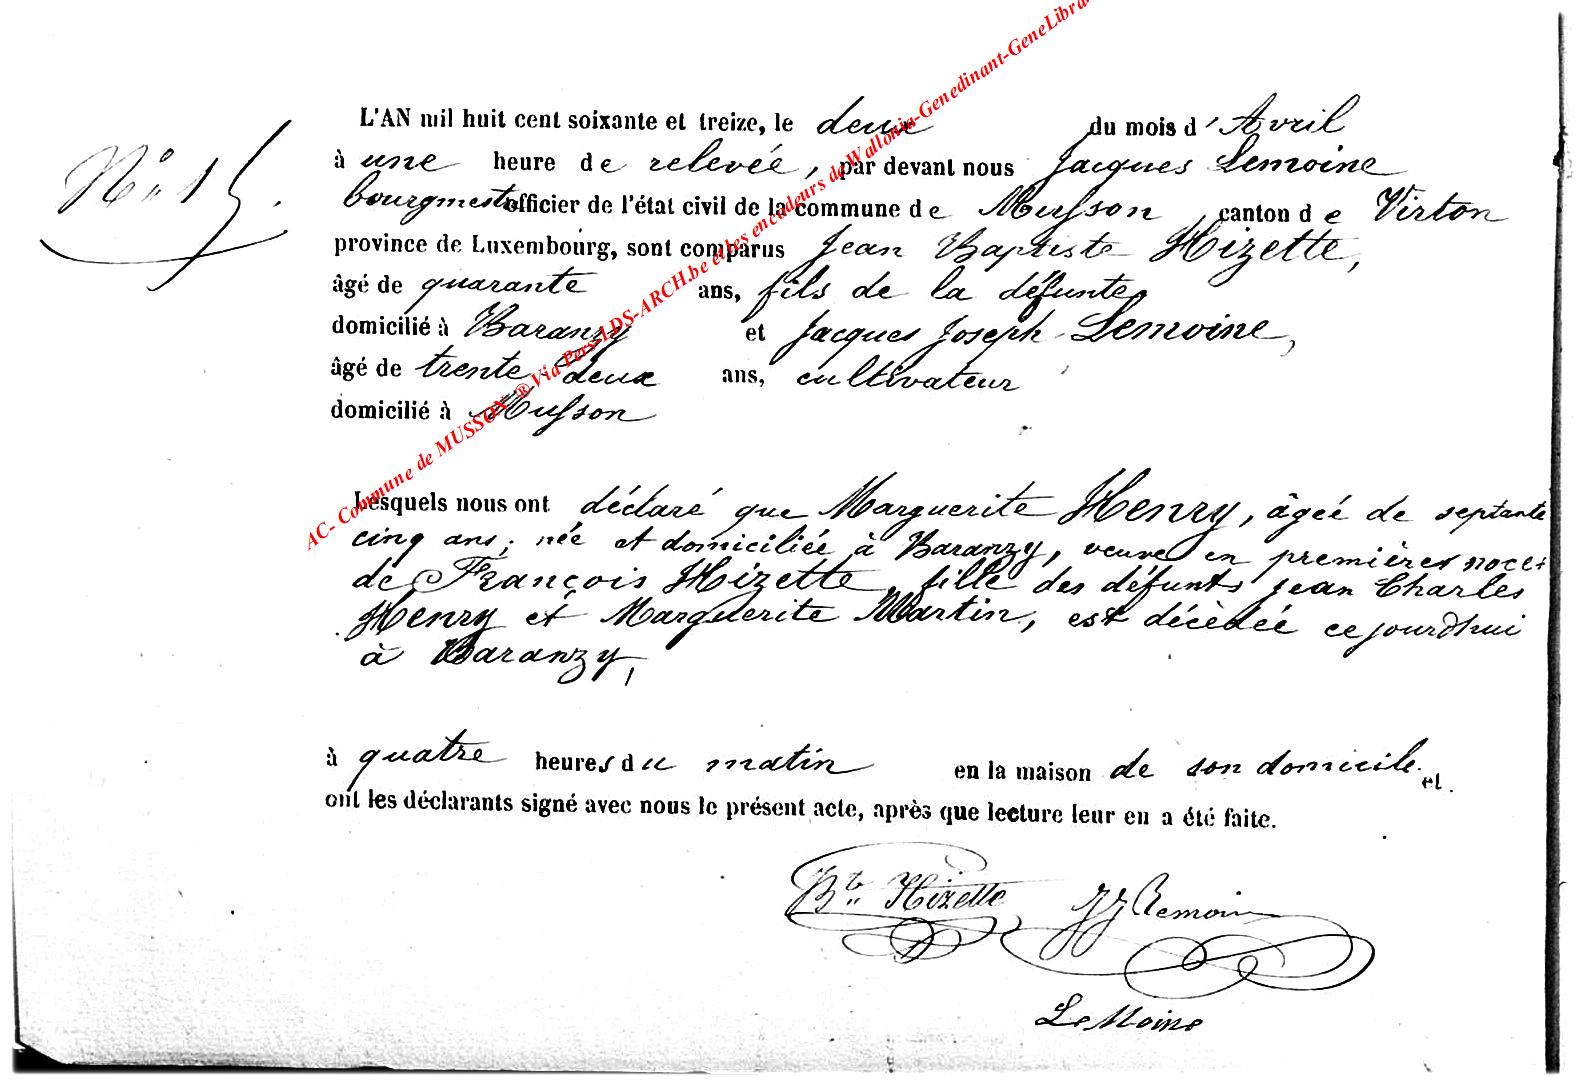 AC- Commune de MUSSON ® Via Pers-LDS-ARCH.be et les encodeurs de Wallonia-Genedinant-GeneLibra
L'AN mil huit cent soixante et treize, le deux du mois d'Avril
N° 15.
à une heure de relevée, par devant nous Jacques Lemoine
bourgmestre officier de l'état civil de la commune de Musson canton de Virton
province de Luxembourg, sont comparus Jean Baptiste Hizette,
âgé de quarante ans, fils de la défunte,
domicilié à Baranzy et Jacques Joseph Lemoine,
âgé de trente deux ans, cultivateur
domicilié à Musson
Lesquels nous ont déclaré que Marguerite Henry, âgée de septante
cinq ans, née et domiciliée à Baranzy, veuve en premières noces
de François Hizette, fille des défunts Jean Charles
Henry et Marguerite Martin, est décédée cejourdhui
à Baranzy,
à quatre heures du matin en la maison de son domicile. et
ont les déclarants signé avec nous le présent acte, après que lecture leur en a été faite.
Bte Hizette JJ Lemoine
LeMoine